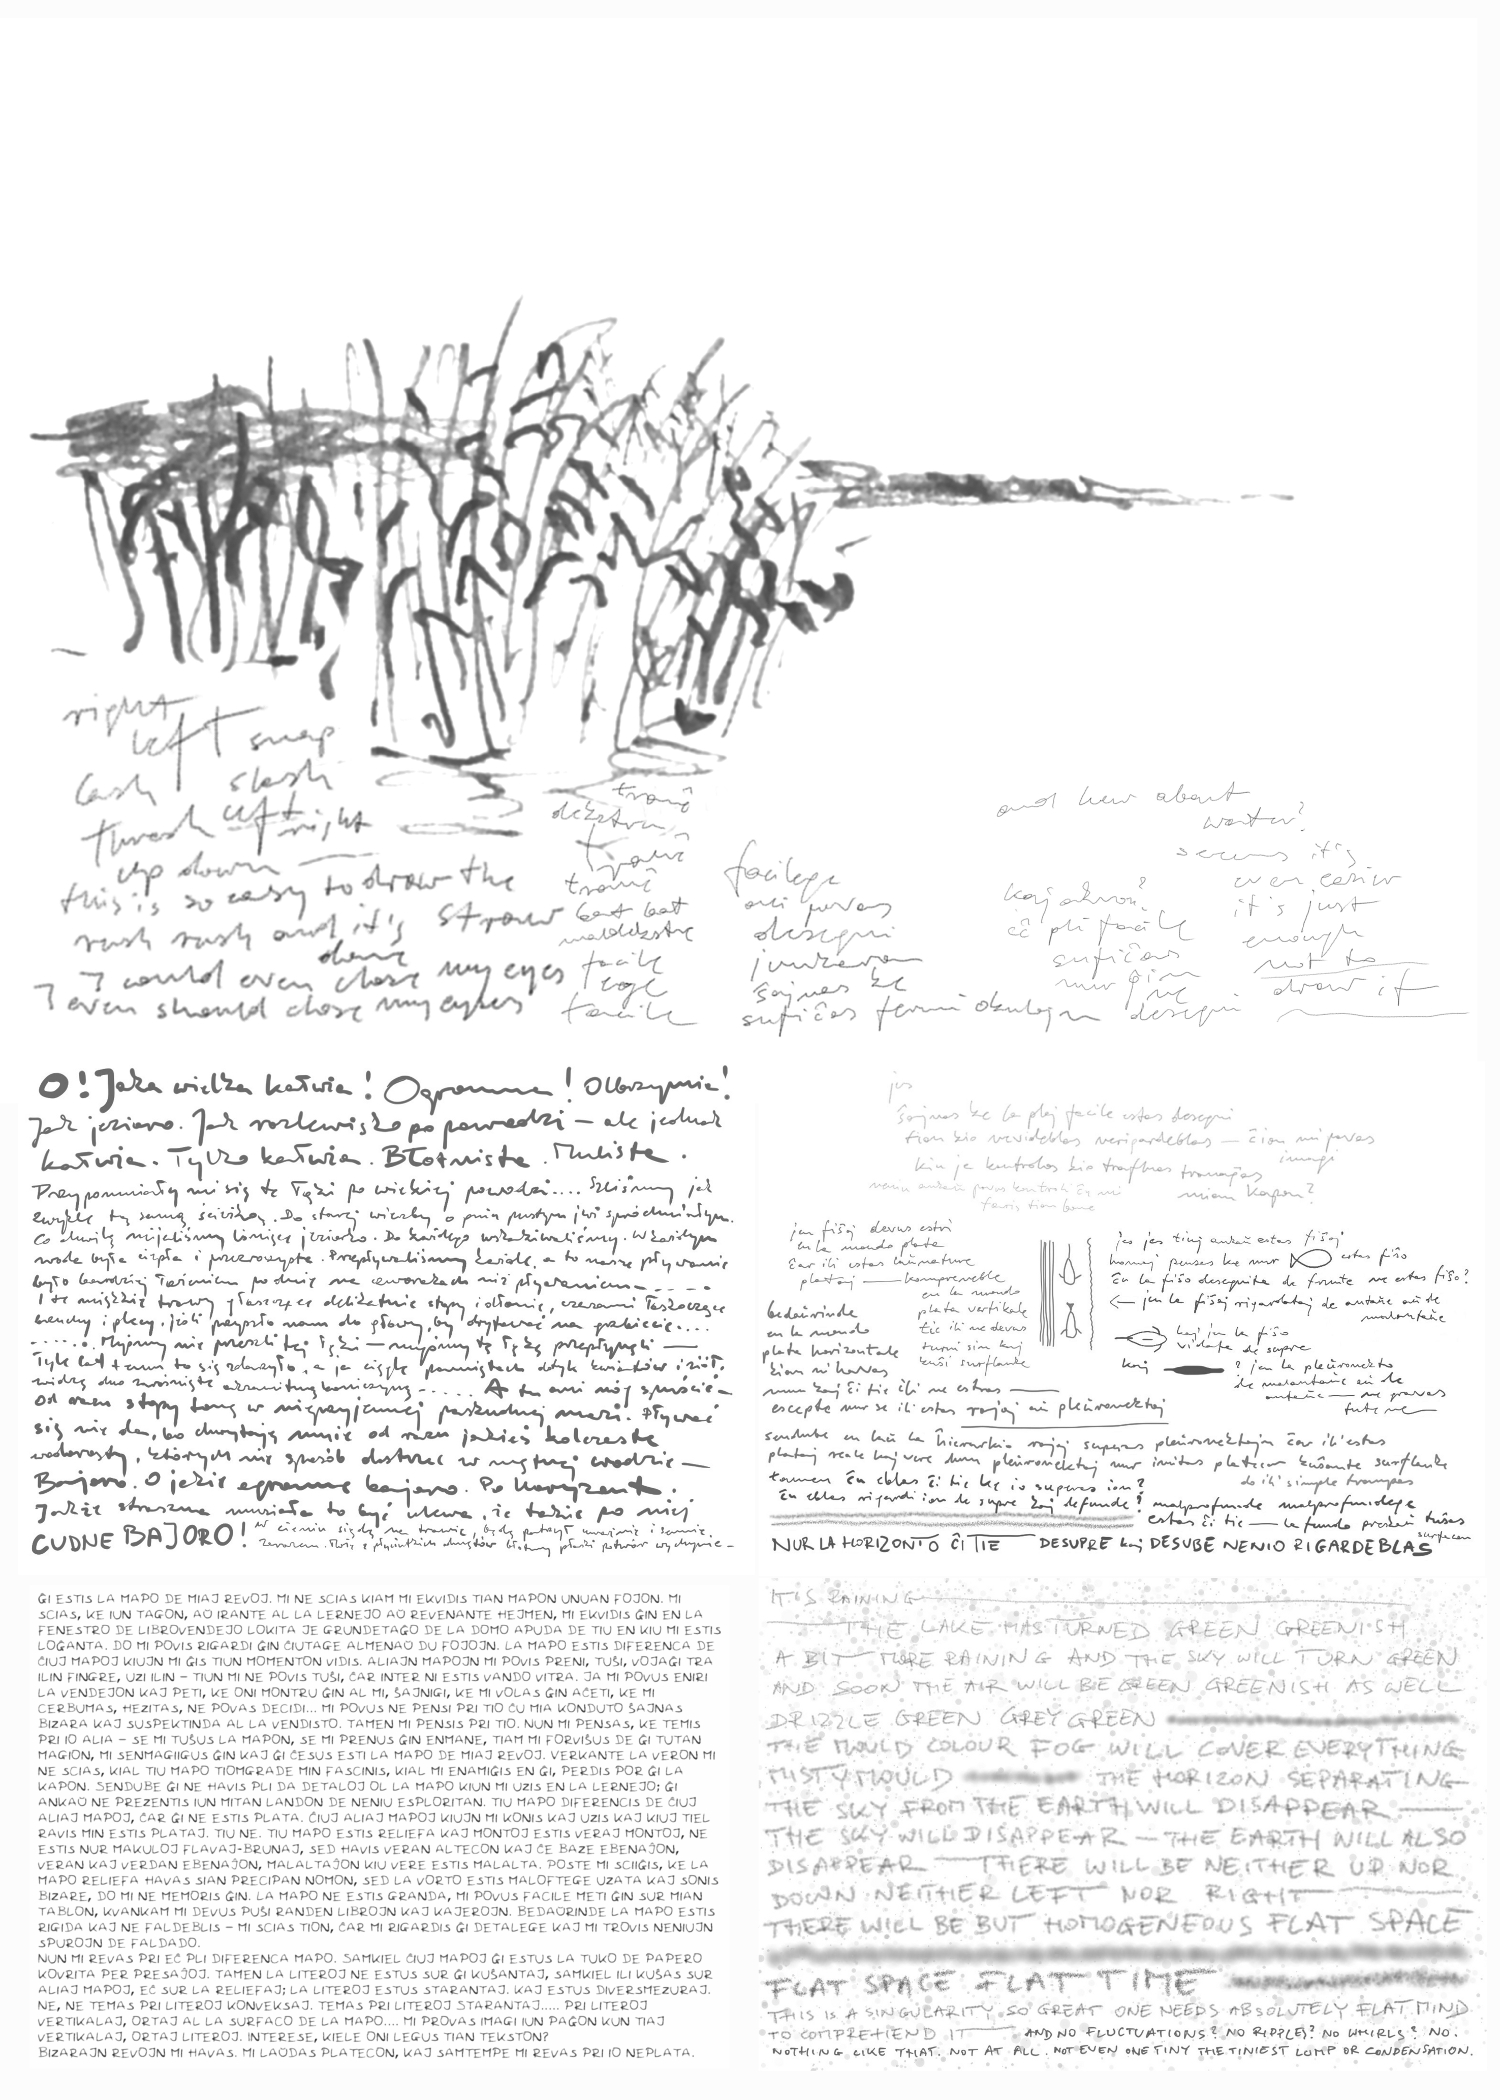 right
left snap
lash slash
thrash left right
up down
this is so easy to draw the
rush rush and it's straw
I could even close my eyes
done
I even should close my eyes
tranĉ
dekstren
tranĉ
tranĉ
bat bat
maldekstre
facile
ege
facile
facilege
oni povas
desegni
junkaron
ŝajnas ke
sufiĉas fermi okulojn
and how about
water?
seems it's
even easier
it's just
enough
not to
draw it
kaj akvon?
eĉ pli facile
sufiĉas
nur ĝin
ne
desegni
O! Jaka wielka kałuża! Ogromna! Olbrzymia!
Jak jezioro. Jak rozlewisko po powodzi – ale jednak
kałuża. Tylko kałuża. Błotnista. Mulista.
Przypomniały mi się te łąki po wielkiej powodzi.... Szliśmy jak
zwykle tą samą ścieżką. Do starej wierzby o pniu pustym już spróchniałym.
Co chwilę mijaliśmy lśniące jeziorko. Do każdego wskakiwaliśmy. W każdym
woda była ciepła i przezroczysta. Przepływaliśmy każde, a to nasze pływanie
było bardziej łażeniem po dnie na czworakach niż pływaniem
I te miękkie trawy głaszczące delikatnie stopy i dłonie, czasami łaskoczące
brzuchy i plecy, jeśli przyszło nam do głowy, by dryfować na grzbiecie....
...... Myśmy nie przeszli tej łąki — myśmy tę łąkę przepłynęli —
Tyle lat temu to się zdarzyło, a ja ciągle pamiętam dotyk kwiatów i ziół.
widzę dno zarośnięte aksamitną koniczyną ..... A tu ani mój spuście —
Od razu stopy toną w nieprzyjemnej paskudnej mazi. Pływać
się nie da, bo chwytają mnie od razu jakieś kolczaste
wodorosty, których nie sposób dostrzec w mętnej wodzie —
Bajoro. O jezie ogromne bajoro. Po horyzont.
Jakże straszna musiała to być ulewa, że także po niej
CUDNE BAJORO! W cieniu siądę na trawie, będę patrzył uważnie i zanim
jes
ŝajnas ke la plej facile estas desegni
tion kio nevideblas nerigardeblas — ĉion mi povas
imagi
kiu ja kontrolos kio trafluas tranaĝas
mian kapon?
neniu ankaŭ povas kontroli ĉu mi
faris tion bone
jen fiŝoj devus esti
en la mondo plata
ĉar ili estas laŭnature
plataj — kompreneble
en la mondo
plata vertikale
tie ili ne devus
turni sin kaj
kuŝi surflanke
bedaŭrinde
en la mondo
plata horizontale
kian ni havas
nun kaj ĉi tie ili ne estas —
escepte nur se ili estas rajoj aŭ pleŭronektoj
jes jes tiuj ankaŭ estas fiŝoj
homoj pensas ke nur estas fiŝo
ĉu la fiŝo desegnita de fronte ne estas fiŝo?
← jen la fiŝoj rigardataj de antaŭe aŭ de
malantaŭe
kaj jen la fiŝo
vidata de supre
kaj ? jen la pleŭronekto
de malantaŭe aŭ de
antaŭe — ne gravas
fute ne —
sendube en kaŭ la hierarkio rajoj superas pleŭronektojn ĉar ili estas
plataj reale kaj vere dum pleŭronektoj nur imitas platecon kuŝante surflanke
do ili simple trompas
tamen ĉu eblas ĉi tie ke io superas ion?
ĉu eblas rigardi ion de supre kaj defunde? malprofunde malprofundege
estas ĉi tie — la fundo preskaŭ tuŝas
surfacon
NUR LA HORIZONTO ĈI TIE DESUPRE kaj DESUBE NENIO RIGARDEBLAS
ĜI ESTIS LA MAPO DE MIAJ REVOJ. MI NE SCIAS KIAM MI EKVIDIS TIAN MAPON UNUAN FOJON. MI
SCIAS, KE IUN TAGON, AŬ IRANTE AL LA LERNEJO AŬ REVENANTE HEJMEN, MI EKVIDIS ĜIN EN LA
FENESTRO DE LIBROVENDEJO LOKITA JE GRUNDETAĜO DE LA DOMO APUDA DE TIU EN KIU MI ESTIS
LOĜANTA. DO MI POVIS RIGARDI ĜIN ĈIUTAGE ALMENAŬ DU FOJOJN. LA MAPO ESTIS DIFERENCA DE
ĈIUJ MAPOJ KIUJN MI ĜIS TIUN MOMENTON VIDIS. ALIAJN MAPOJN MI POVIS PRENI, TUŜI, VOJAĜI TRA
ILIN FINGRE, UZI ILIN – TIUN MI NE POVIS TUŜI, ĈAR INTER NI ESTIS VANDO VITRA. JA MI POVUS ENIRI
LA VENDEJON KAJ PETI, KE ONI MONTRU ĜIN AL MI, ŜAJNIGI, KE MI VOLAS ĜIN AĈETI, KE MI
CERBUMAS, HEZITAS, NE POVAS DECIDI... MI POVUS NE PENSI PRI TIO ĈU MIA KONDUTO ŜAJNAS
BIZARA KAJ SUSPEKTINDA AL LA VENDISTO. TAMEN MI PENSIS PRI TIO. NUN MI PENSAS, KE TEMIS
PRI IO ALIA – SE MI TUŜUS LA MAPON, SE MI PRENUS ĜIN ENMANE, TIAM MI FORVIŜUS DE ĜI TUTAN
MAGION, MI SENMAGIIGUS ĜIN KAJ ĜI ĈESUS ESTI LA MAPO DE MIAJ REVOJ. VERKANTE LA VERON MI
NE SCIAS, KIAL TIU MAPO TIOMGRADE MIN FASCINIS, KIAL MI ENAMIĜIS EN ĜI, PERDIS POR ĜI LA
KAPON. SENDUBE ĜI NE HAVIS PLI DA DETALOJ OL LA MAPO KIUN MI UZIS EN LA LERNEJO; ĜI
ANKAŬ NE PREZENTIS IUN MITAN LANDON DE NENIU ESPLORITAN. TIU MAPO DIFERENCIS DE ĈIUJ
ALIAJ MAPOJ, ĈAR ĜI NE ESTIS PLATA. ĈIUJ ALIAJ MAPOJ KIUJN MI KONIS KAJ UZIS KAJ KIUJ TIEL
RAVIS MIN ESTIS PLATAJ. TIU NE. TIU MAPO ESTIS RELIEFA KAJ MONTOJ ESTIS VERAJ MONTOJ, NE
ESTIS NUR MAKULOJ FLAVAJ-BRUNAJ, SED HAVIS VERAN ALTECON KAJ ĈE BAZE EBENAĴON,
VERAN KAJ VERDAN EBENAĴON, MALALTAĴON KIU VERE ESTIS MALALTA. POSTE MI SCIIĜIS, KE LA
MAPO RELIEFA HAVAS SIAN PRECIPAN NOMON, SED LA VORTO ESTIS MALOFTEGE UZATA KAJ SONIS
BIZARE, DO MI NE MEMORIS ĜIN. LA MAPO NE ESTIS GRANDA, MI POVUS FACILE METI ĜIN SUR MIAN
TABLON, KVANKAM MI DEVUS PUŜI RANDEN LIBROJN KAJ KAJEROJN. BEDAŬRINDE LA MAPO ESTIS
RIGIDA KAJ NE FALDEBLIS – MI SCIAS TION, ĈAR MI RIGARDIS ĜI DETALEGE KAJ MI TROVIS NENIUJN
SPUROJN DE FALDADO.
NUN MI REVAS PRI EĈ PLI DIFERENCA MAPO. SAMKIEL ĈIUJ MAPOJ ĜI ESTUS LA TUKO DE PAPERO
KOVRITA PER PRESAĴOJ. TAMEN LA LITEROJ NE ESTUS SUR ĜI KUŜANTAJ, SAMKIEL ILI KUŜAS SUR
ALIAJ MAPOJ, EĈ SUR LA RELIEFAJ; LA LITEROJ ESTUS STARANTAJ. KAJ ESTUS DIVERSMEZURAJ.
NE, NE TEMAS PRI LITEROJ KONVEKSAJ. TEMAS PRI LITEROJ STARANTAJ..... PRI LITEROJ
VERTIKALAJ, ORTAJ AL LA SURFACO DE LA MAPO.... MI PROVAS IMAGI IUN PAĜON KUN TIAJ
VERTIKALAJ, ORTAJ LITEROJ. INTERESE, KIELE ONI LEGUS TIAN TEKSTON?
BIZARAJN REVOJN MI HAVAS. MI LAŬDAS PLATECON, KAJ SAMTEMPE MI REVAS PRI IO NEPLATA.
IT IS RAINING
THE LAKE HAS TURNED GREEN GREENISH
A BIT MORE RAINING AND THE SKY WILL TURN GREEN
AND SOON THE AIR WILL BE GREEN GREENISH AS WELL
DRIZZLE GREEN GREY GREEN
THE MOULD COLOUR FOG WILL COVER EVERYTHING
MISTY MOULD THE HORIZON SEPARATING
THE SKY FROM THE EARTH WILL DISAPPEAR —
THE SKY WILL DISAPPEAR – THE EARTH WILL ALSO
DISAPPEAR — THERE WILL BE NEITHER UP NOR
DOWN NEITHER LEFT NOR RIGHT
THERE WILL BE BUT HOMOGENEOUS FLAT SPACE
FLAT SPACE FLAT TIME
THIS IS A SINGULARITY SO GREAT ONE NEEDS ABSOLUTELY FLAT MIND
TO COMPREHEND IT — AND NO FLUCTUATIONS? NO RIPPLES? NO WHIRLS? NO.
NOTHING LIKE THAT. NOT AT ALL. NOT EVEN ONE TINY THE TINIEST LUMP OR CONDENSATION.